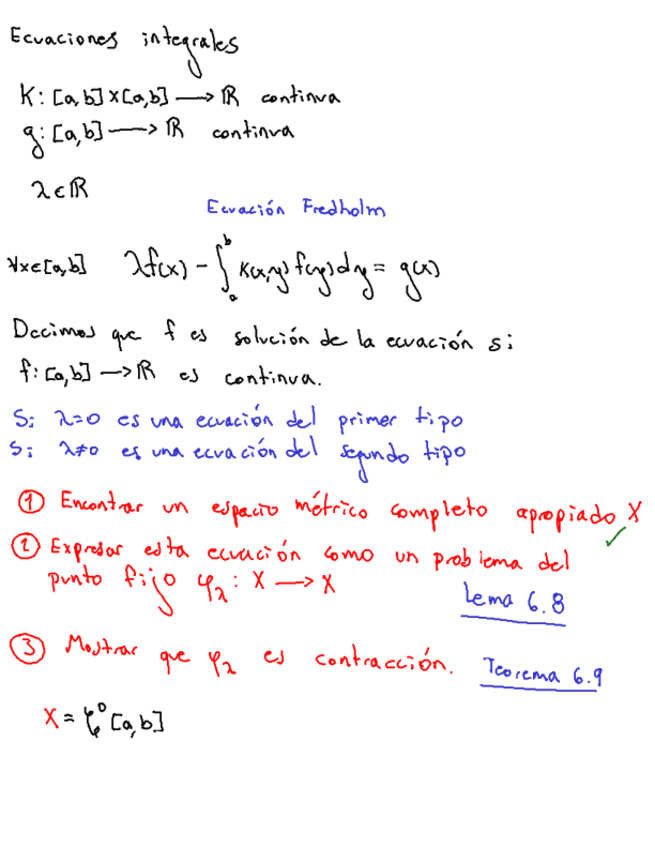 Ecuaciones integrales
K: [a,b]×[a,b] → ℝ continua
g: [a,b] → ℝ continua
λ∈ℝ
Ecuación Fredholm
∀x∈[a,b] λf(x) - ∫_a^b K(x,y) f(y) dy = g(x)
Decimos que f es solución de la ecuación si
f: [a,b] → ℝ es continua.
Si λ=0 es una ecuación del primer tipo
Si λ≠0 es una ecuación del segundo tipo
① Encontrar un espacio métrico completo apropiado X ✓
② Expresar esta ecuación como un problema del
punto fijo φ_λ : X → X
Lema 6.8
③ Mostrar que φ_λ es contracción. Teorema 6.9
X = 𝒞⁰[a,b]